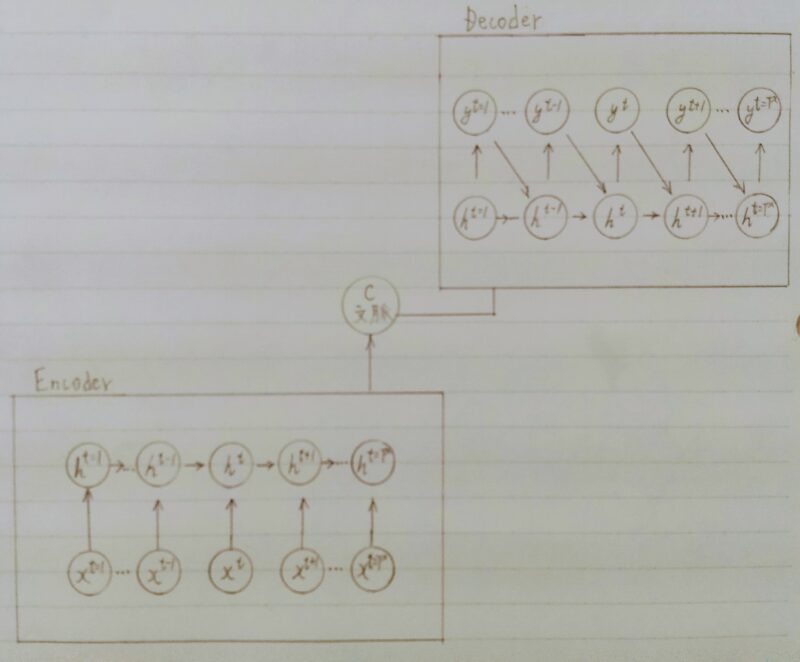 Decoder
y^{t=1} ... y^{t-1} y^{t} y^{t+1} ... y^{t=T^x}
h^{t=1} h^{t-1} h^{t} h^{t+1} ... h^{t=T^x}
C
文脈
Encoder
h^{t=1} ... h^{t-1} h^{t} h^{t+1} ... h^{t=T^x}
x^{t=1} ... x^{t-1} x^{t} x^{t+1} ... x^{t=T^x}